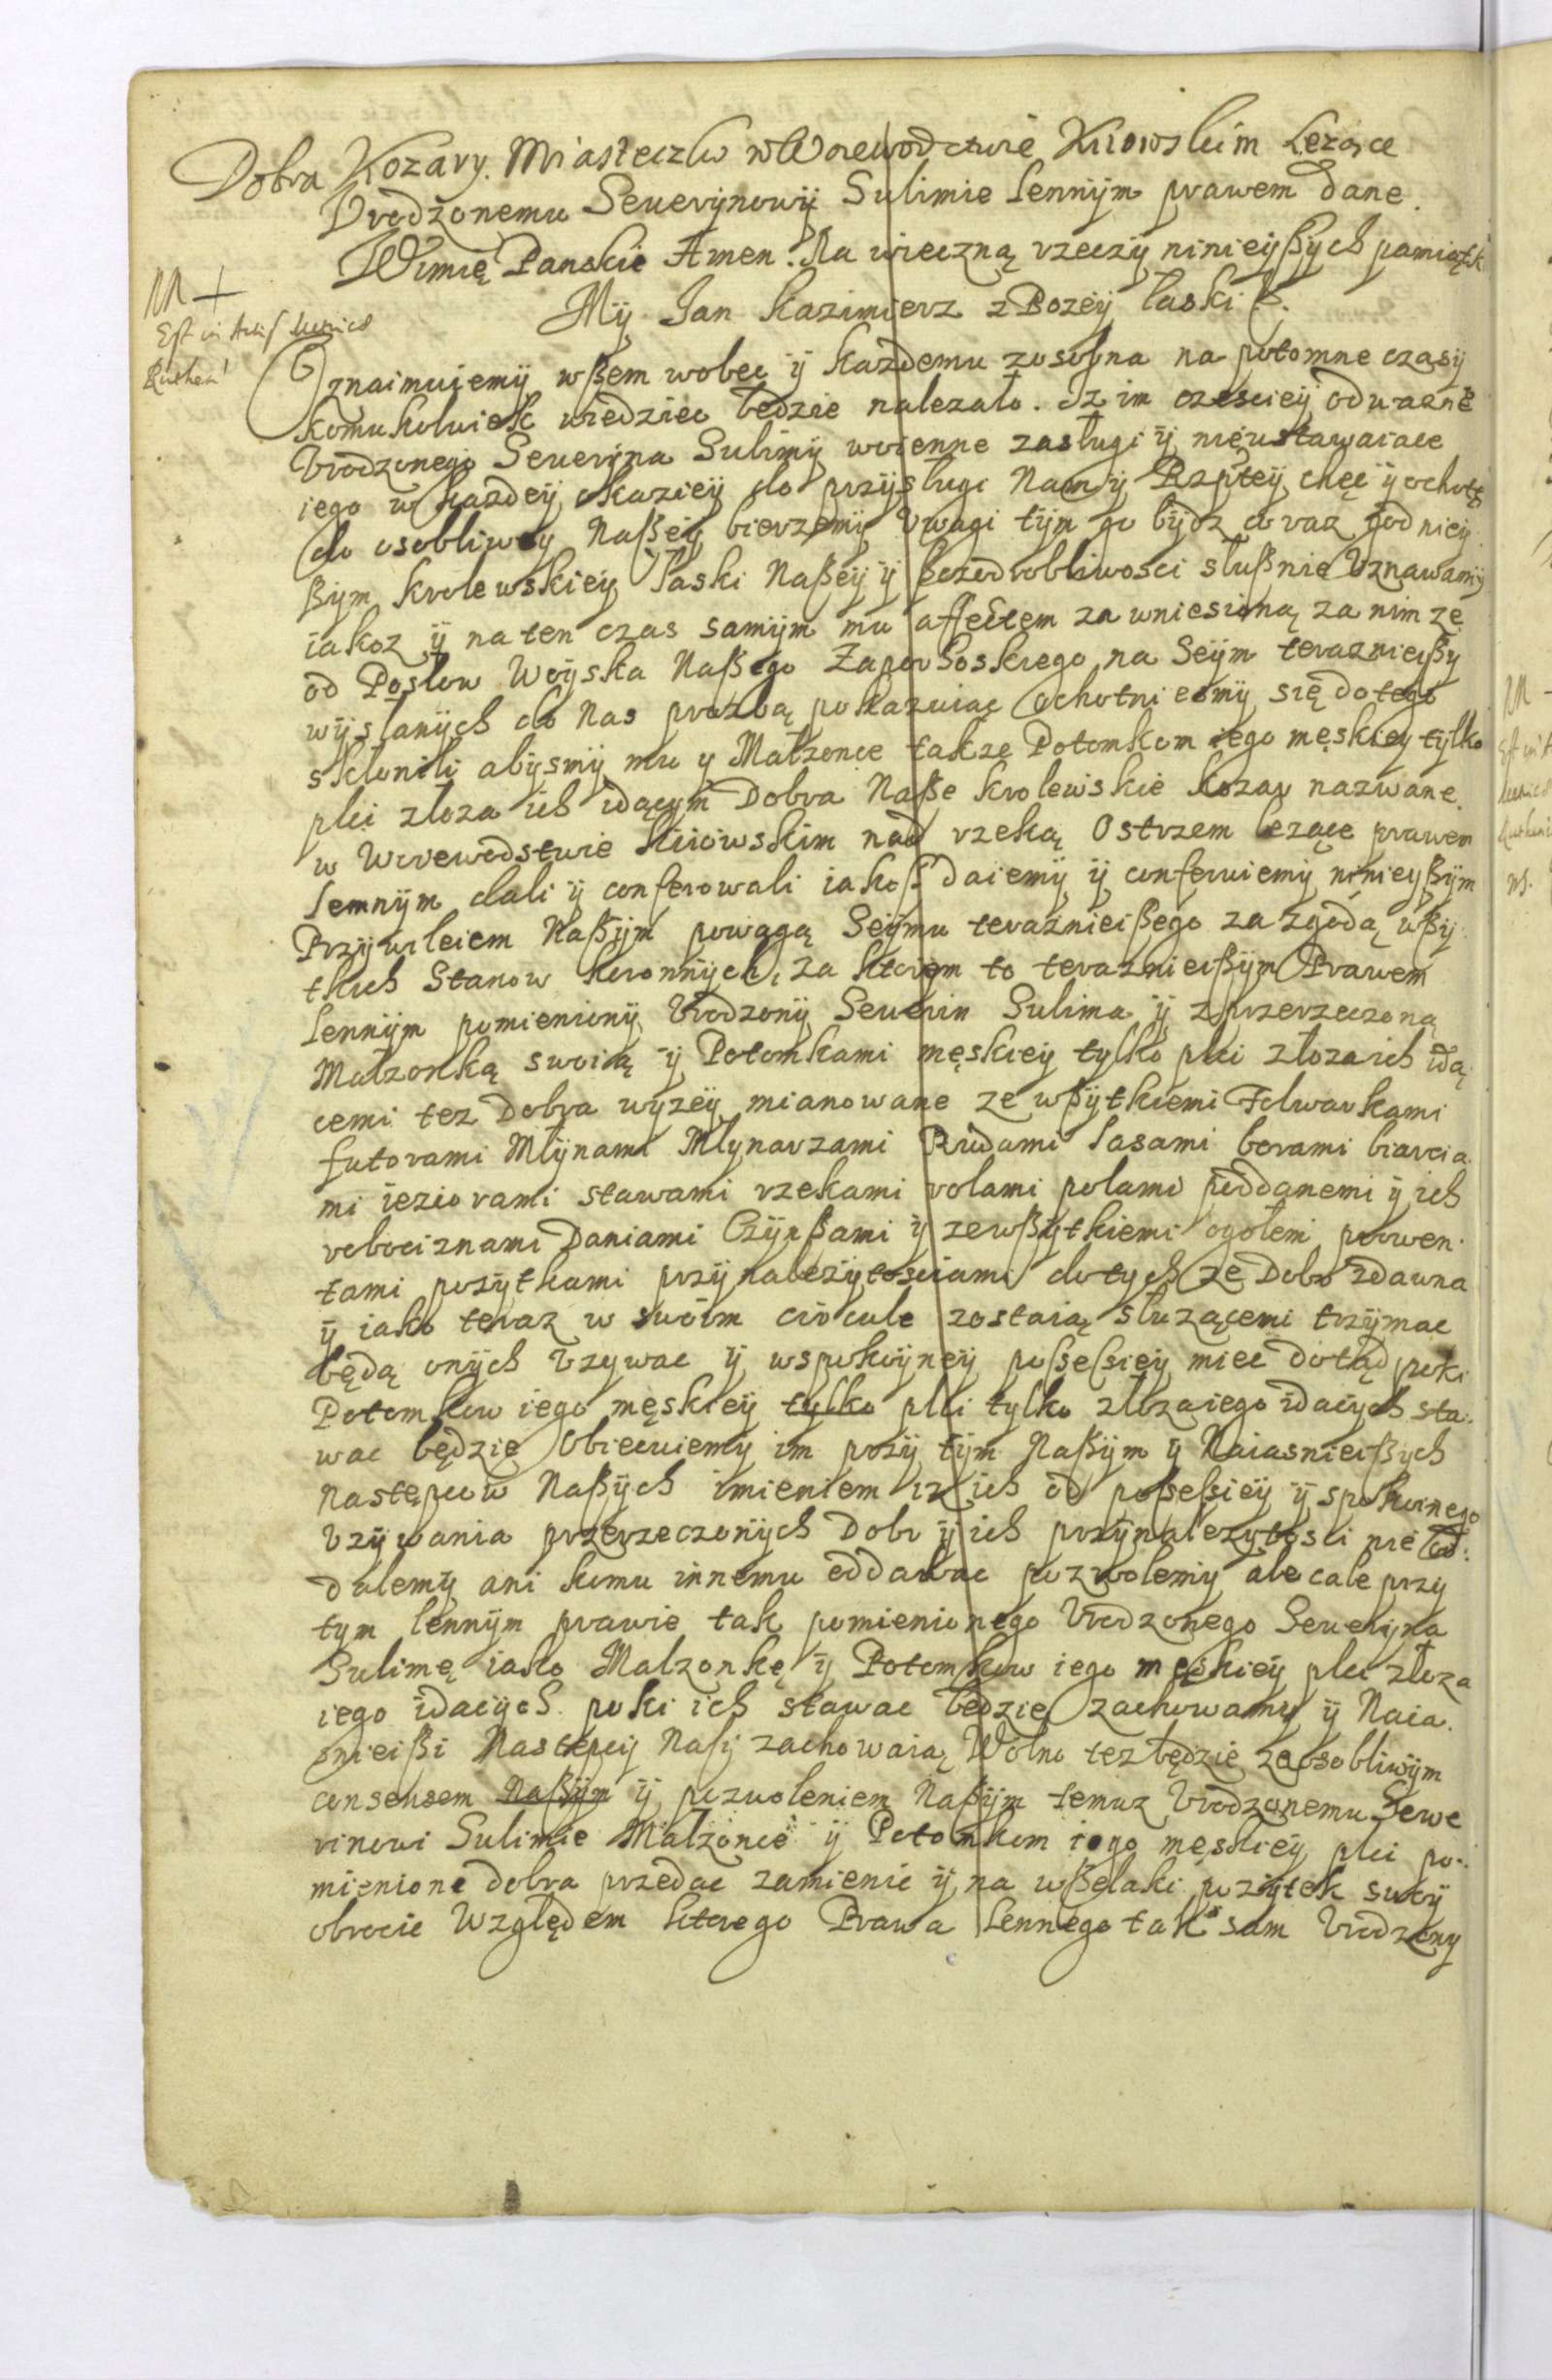 Dobra Kozary. Miasteczko w Woiewodztwie Kiiowskim Lezące
Vrodzonemu Seuerÿnowÿ Sulimie Lennÿm prawem dane.
W imię Panskie Amen. Na wieczną rzeczÿ ninieÿßÿch pamiątk
MM +
Mÿ Jan Kazimierz z Bozeÿ laski &.
Est in Actis
Ruthen
Oznaimuiemÿ wßem wobec ÿ kazdemu zosobna na potomne czasÿ
komukolwiek wiedziec będzie nalezało. Iz im czesciey odwazne
Vrodzonego Seuerÿna Sulimÿ woienne zasługi ÿ nieustawaiace
iego w kazdeÿ okazieÿ do przÿsługi Nam ÿ Rzpteÿ chęc ÿ ochotę
do osobliwey Naßeÿ bierzemÿ Vwagi tÿm go bÿdz coraz godnieÿ
ßÿm krolewskieÿ łaski Naßeÿ ÿ szczodrobliwosci słußnie Vznawamÿ
iakoz ÿ na ten czas samÿm mu affectem za wniesioną za nim ze
od Posłow Woÿska Naßego Zaporoskiego na Seÿm teraznieyßy
wÿsłanÿch do Nas prozbą pokazuiąc ochotniesmÿ się do tego
skłonili abÿsmÿ mu y Małzonce takze Potomkom iego męskiey tylko
płci z łoza ich idącym Dobra Naße krolewskie kozary nazwane
w Woiewodstwie kiiowskim nad rzeką Ostrzem lezące prawem
lennÿm dali ÿ conferowali iakoß daiemÿ ÿ conferuiemÿ ninieyßÿm
Przÿwileiem Naßÿm powagą Seÿmu teraznieißego za zgodą wßÿ
tkich Stanow koronnÿch, za ktorÿm to teraznieißÿm Prawem
Lennÿm pomienionÿ Vrodzonÿ Seuerin Sulima ÿ z przerzeczoną
Małzonką swoią ÿ Potomkami męskieÿ tylko płci z łoza ich idą
cemi tez Dobra wyzeÿ mianowane ze wßÿtkiemi Folwarkami
futorami Młÿnami Młynarzami Rudami lasami borami barcia
mi ieziorami stawami rzekami rolami polami poddanemi ÿ ich
robociznami Daniami Czÿnßami ÿ ze wßÿtkiemi ogołem prowen
tami pozÿtkami przÿnalezÿtosciami do tych ze Dobr zdawna
ÿ iako teraz w swoim circule zostaią słuzącemi trzÿmac
będą onÿch Vzywac ÿ w spokoÿneÿ poßeßieÿ miec dotąd poki
Potomkow iego męskieÿ tylko płci tylko z łoza iego idacÿch sta
wac będzie Obiecuiemÿ im przÿ tÿm Naßÿm ÿ Naiasnieißych
Następcow Naßÿch imieniem iz ich od poßeßieÿ ÿ spokoinego
Vzÿwania przerzeczonÿch Dobr ÿ ich przÿnalezÿtosci nie od
dalemÿ ani komu innemu oddawac pozwolemÿ ale cale przy
tym lennÿm prawie tak pomienionego Vrodzonego Seuerÿna
Sulimę iako Małzonkę ÿ Potomkow iego męskieÿ płci z łoza
iego idacÿch poki ich stawac będzie zachowamy ÿ Naia
snieißi Następcÿ Nasÿ zachowaią Wolno tez będzie za osobliwÿm
consensem Naßÿm ÿ pozwoleniem Naßÿm temuz Vrodzonemu Sewe
rinowi Sulimie Małzonce ÿ Potomkom iego męskieÿ płci po
mienione dobra przedac zamienic ÿ na wßelaki pozÿtek swoÿ
obrocic Względem ktorego Prawa Lennego tak sam Vrodzony